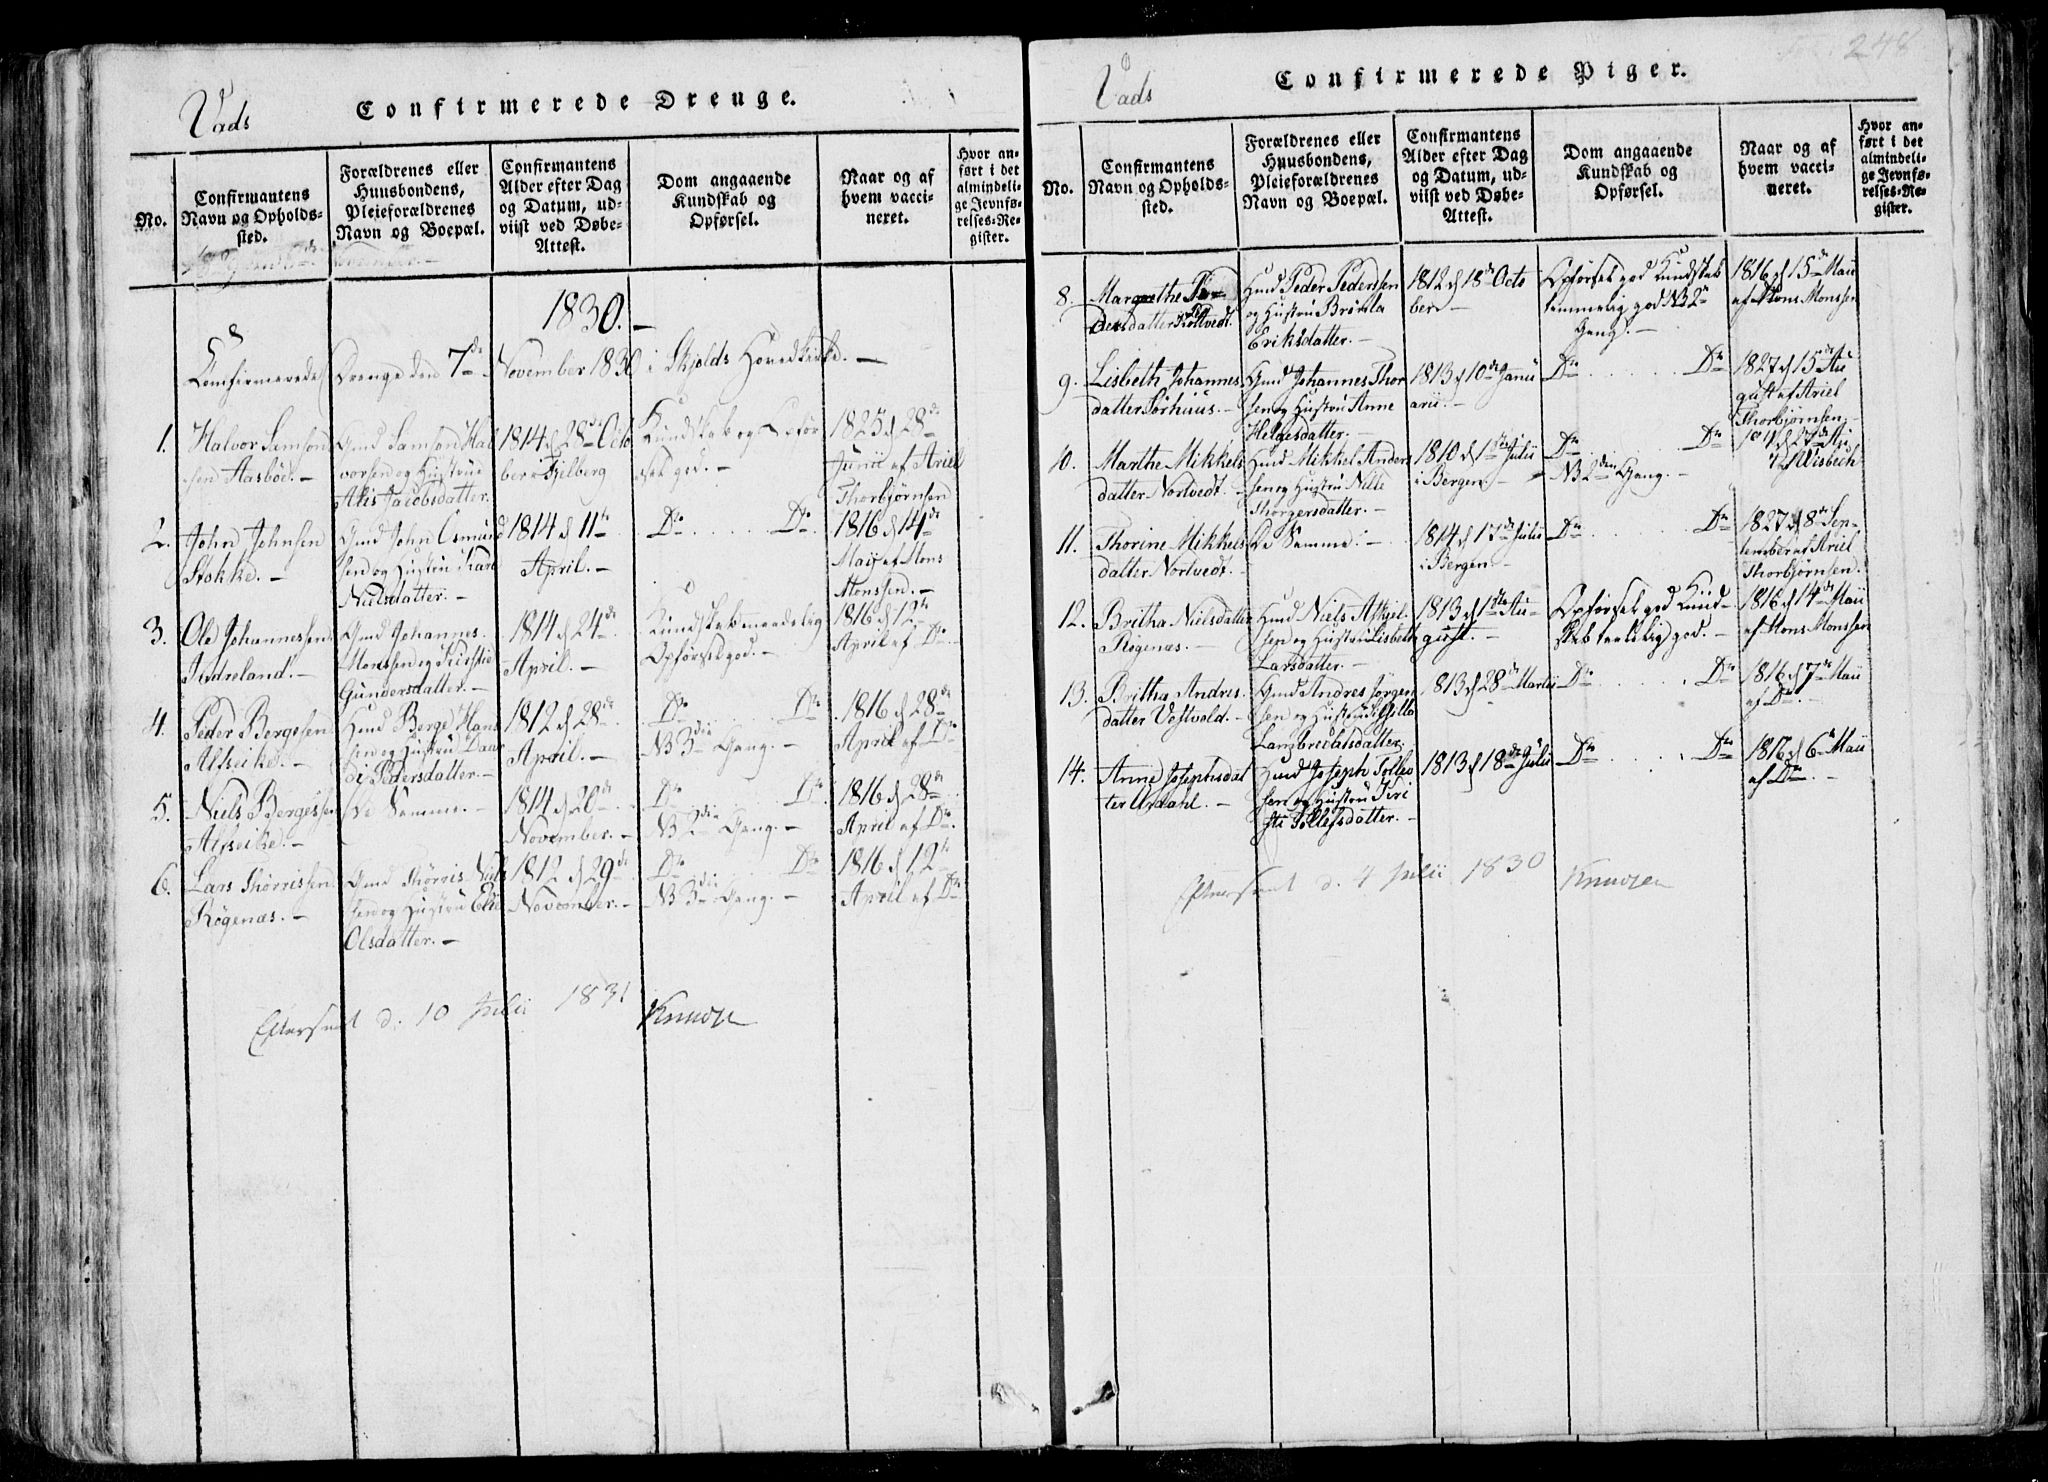 Vads
Confirmerede Drenge.
No.
Confirmantens
Navn og Opholds-
sted.
Forældrenes eller
Huusbondens,
Plejeforældrenes
Navn og Boepæl.
Confirmantens
Alder efter Dag
og Datum, ud-
viist ved Døbe-
Attest.
Dom angaaende
Kundskab og
Opførsel.
Naar og af
hvem vacci-
neret.
Hvor an-
ført i det
almindeli-
ge Jevnfø-
relses-Re-
gister.
1830. –
Confirmerede Drenge den 7de November 1830 i Skjolds Hovedkirke. –
1.
Halvor Samson
sen Aasböe. –
Gmd Samson Hal
vorsen og Hustrue
Jacobsdatter.
1814 d 28de Octo
ber Fjelberg
Kundskab og Opfør
sel god. –
1825 d 28de
Junii af Ariel
Thorbjørnsen
2.
John Johnsen
Stokke. –
Gmd John Osmund
sen og Hustru Kari
Nielsdatter. –
1814 d 11te
April. –
Do . . . . . Do.
1816 d 14de
Maij af Mons
Monssen. –
3.
Ole Johannessen
Indreland. –
Gmd Johannes
Monssen og
Gundersdatter. –
1814 d 24de
April. –
Kundskab maadelig
Opførsel god. –
1816 d 12te
April af Do
4.
Peder Bergessen
Alfseike. –
Hmd Berge Hans
sen og Hustru
Pedersdatter –
1812 d 28de
April. –
Do . . . Do
NB 3die Gang. –
1816 d 28de
April af Do
5.
Niels Bergessen
Alfseike. –
De Samme. –
1814 d 20de
November. –
Do . . . Do.
NB 2den Gang. –
1816 d 28de
April af Do.
6.
Lars Thorrissen
Røgenæs. –
Gmd Thorris Niels
sen og Hustru Elie
Olsdatter. –
1812 d 29de
November. –
Do . . . Do
NB 3die Gang. –
1816 d 12te
April af Do
Efterseet d. 10 Julii 1831 Knudsen
248
Vads
Confirmerede Piger.
No.
Confirmantens
Navn og Opholds-
sted.
Forældrenes eller
Huusbondens,
Plejeforældrenes
Navn og Boepæl.
Confirmantens
Alder efter Dag
og Datum, ud-
viist ved Døbe-
Attest.
Dom angaaende
Kundskab og
Opførsel.
Naar og af
hvem vacci-
neret.
Hvor an-
ført i det
almindeli-
ge Jevnfø-
relses-Re-
gister.
8.
Margrethe Pe-
dersdatter
Hmd Peder Pedersen
og Hustru Brønla
Eriksdatter. –
1812 d 18de Octo
ber –
Opførsel god Kundskab
temmelig god NB 2den
Gang. –
1816 d 15de Maii
af Mons Monssen
9.
Lisbeth Johannes
datter Sørhuus. –
Gmd Johannes Thor
sen og Hustru Anne
Helgesdatter. –
1813 d 10de Janu
arii. –
Do . . . . . . Do
1827 d 15de Au
gust af Ariel
Thorbjørnsen. –
10.
Marthe Mikkels
datter Nortvedt. –
Hmd Mikkel Anders
sen og Hustru Nille
Thorgersdatter. –
1810 d 1ste Julii
i Bergen –
Do . . . . . Do
NB 2den Gang. –
1811 d 27de Au
af Wisbech
11.
Thorine Mikkels
datter Nortvedt. –
De Samme. –
1814 d 17de Julii
i Bergen –
Do . . . . . . Do
1827 d 8de Sep-
tember af Ariel
Thorbjørnsen.
12.
Britha Nielsdatter
Røgenæs. –
Hmd Niels Askjel
sen og Hustru Lisbeth
Larsdatter. –
1813 d 1ste Au-
gust. –
Opførsel god Kund-
skab god. –
1816 d 14de Maii
af Mons Monssen
13.
Britha Andres
datter Vestvold. –
Gmd Andres Jørgen
sen og Hustru
Lambrechtsdatter.
1813 d 28de Martii
Do . . . . . . Do
1816 d 7de Maii
af Do. –
14.
Anne Josephsdat
ter Ordahl. –
Hmd Joseph Tollev
sen og Hustru Kri
sti Tollefsdatter. –
1813 d 18de Julii
Do . . . . . . Do
1816 d 6te Maii
af Do. –
Efterseet d. 4 Julii 1830 Knudsen